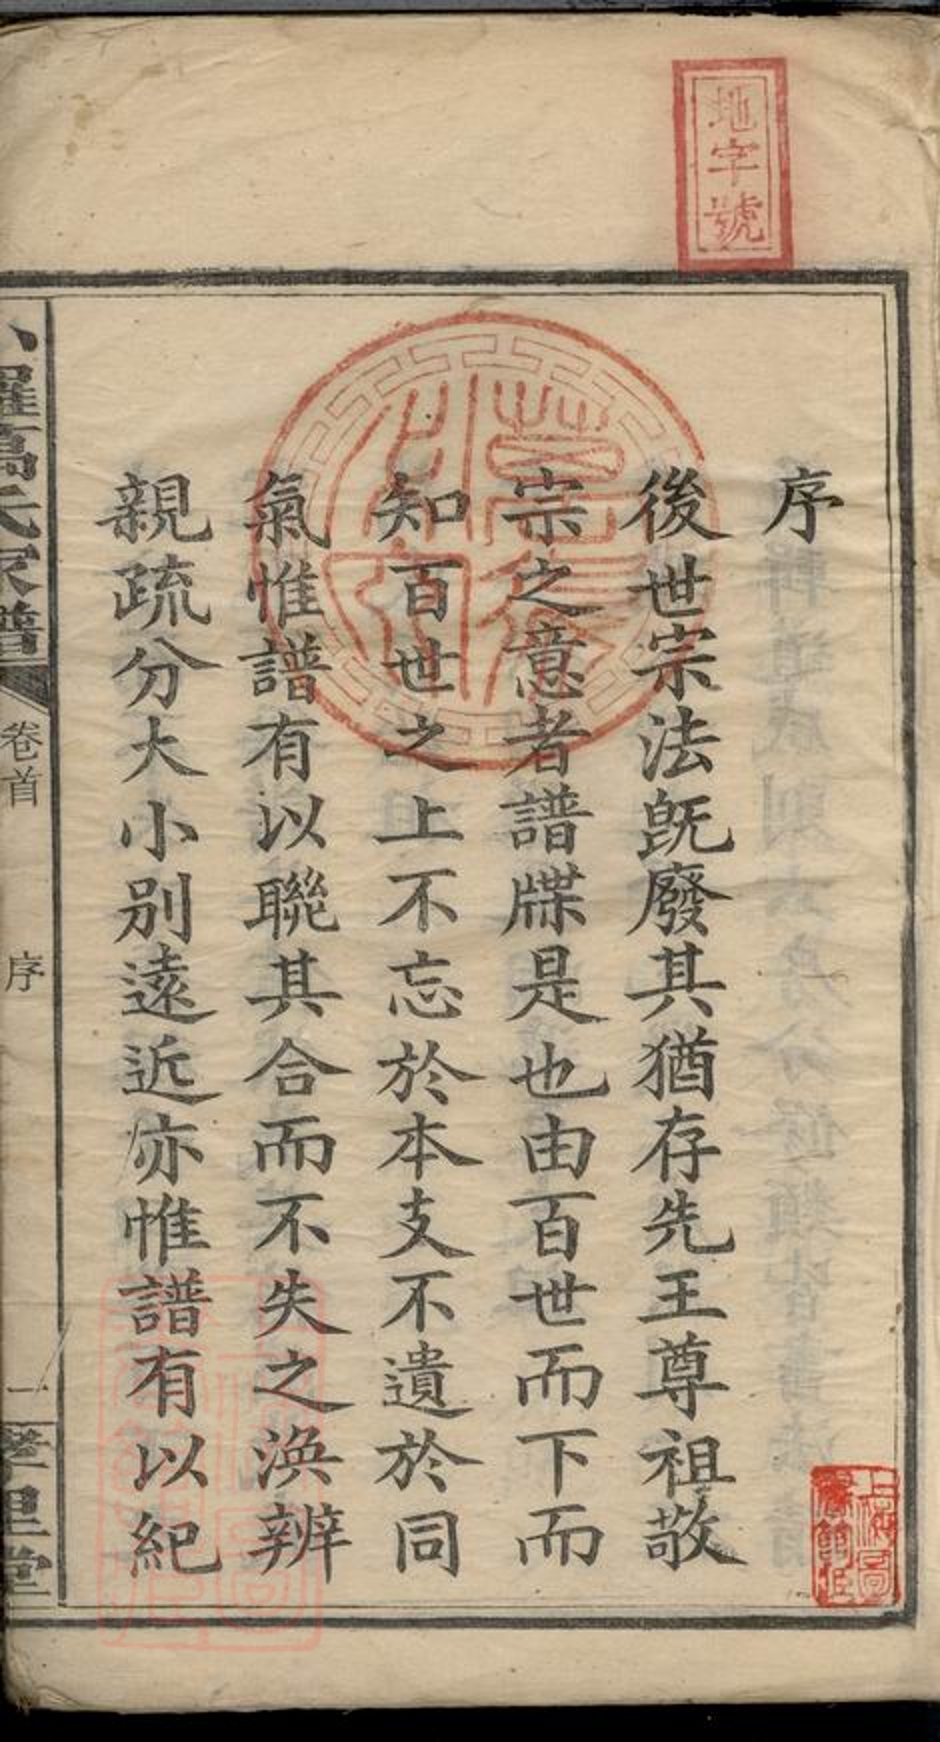 地字號
序
後世宗法旣廢其猶存先王尊祖敬
宗之意者譜牒是也由百世而下而
知百世之上不忘於本支不遺於同
氣惟譜有以聯其合而不失之渙辨
親疏分大小别遠近亦惟譜有以紀
羅葛氏家譜
卷首
序
一
孝思堂
上海圖書館藏